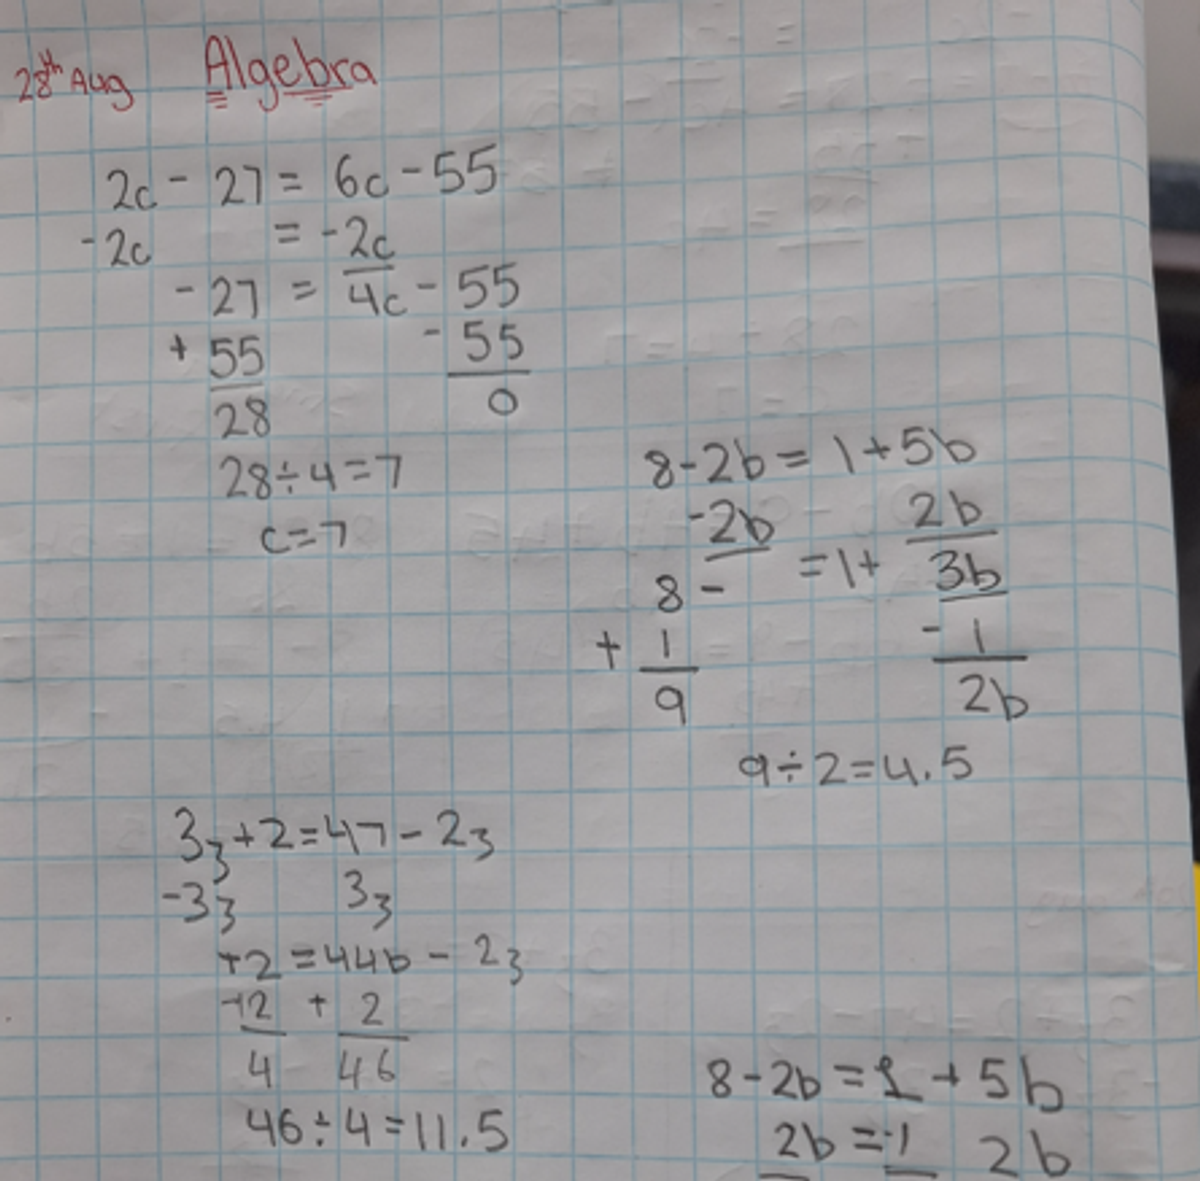 28th Aug Algebra
2c - 27 = 6c - 55
-2c = -2c
-27 = 4c - 55
+ 55 - 55
28 0
28 ÷ 4 = 7
c = 7
8 - 2b = 1 + 5b
-2b 2b
8 - = 1 + 3b
+ 1 - 1
9 2b
9 ÷ 2 = 4.5
3z + 2 = 47 - 2z
-3z 3z
+2 = 44b - 2z
+2 + 2
4 46
46 ÷ 4 = 11.5
8 - 2b = 1 + 5b
2b = -1 2b